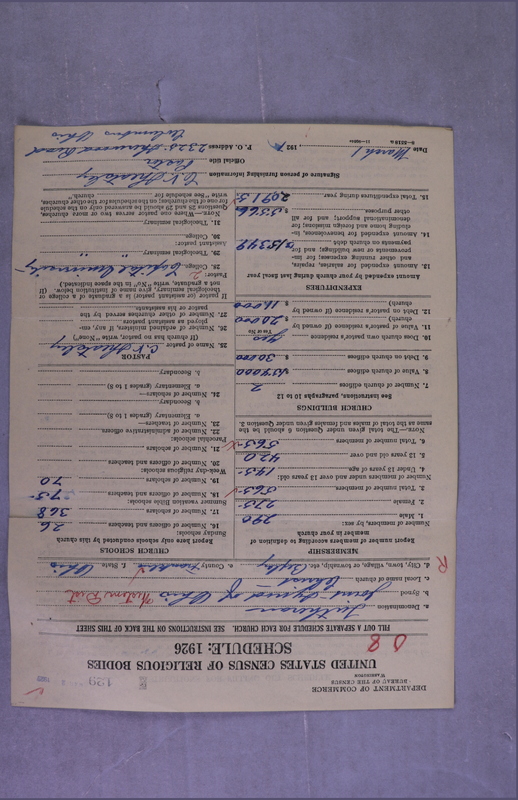 DEPARTMENT OF COMMERCE
BUREAU OF THE CENSUS
WASHINGTON
UNITED STATES CENSUS OF RELIGIOUS BODIES
SCHEDULE: 1926
FILL OUT A SEPARATE SCHEDULE FOR EACH CHURCH. SEE INSTRUCTIONS ON THE BACK OF THIS SHEET
a. Denomination Lutheran
b. Synod Joint Synod of Ohio
c. Local name of church Christ
d. City, town, village, or township, etc. Bexley e. County Franklin f. State Ohio
MEMBERSHIP
Report number of members according to definition of member in your church
Number of members, by sex:
1. Male 290
2. Female 275
3. Total number of members 565
Number of members under and over 13 years old:
4. Under 13 years of age 145
5. 13 years old and over 420
6. Total number of members 565
NOTE.—The total given under Question 6 should be the same as the total of males and females given under Question 3.
CHURCH BUILDINGS
See Instructions, paragraphs 10 to 12
7. Number of church edifices 2
8. Value of church edifices $139000
9. Debt on church edifices $ 30000
10. Does church own pastor's residence yes
Yes or No
11. Value of pastor's residence (if owned by church) $ 20000
12. Debt on pastor's residence (if owned by church) $ 11000
EXPENDITURES
Amount expended by your church during last fiscal year
13. Amount expended for salaries, repairs, and other running expenses; for improvements or new buildings; and for payments on church debt $15349
14. Amount expended for benevolences, including home and foreign missions; for denominational support; and for all other purposes $5566
15. Total expenditures during year 20915
CHURCH SCHOOLS
Report here only schools conducted by this church
Sunday schools:
16. Number of officers and teachers 26
17. Number of scholars 368
Summer vacation Bible schools:
18. Number of officers and teachers
19. Number of scholars 70
Week-day religious schools:
20. Number of officers and teachers
21. Number of scholars
Parochial schools:
22. Number of administrative officers
23. Number of teachers—
a. Elementary (grades 1 to 8)
b. Secondary
24. Number of scholars—
a. Elementary (grades 1 to 8)
b. Secondary
PASTOR
25. Name of pastor
(If church has no pastor, write "None")
26. Number of ordained ministers, if any, employed as assistant pastors
27. Number of other churches served by the pastor or his assistants
If pastor (or assistant pastor) is a graduate of a college or theological seminary, give name of institution below. (If not a graduate, write "No" in the space indicated.)
Pastor:
28. College Capital University
29. Theological seminary " "
Assistant pastor:
30. College
31. Theological seminary
NOTE.—Where one pastor serves two or more churches, Questions 28 and 29 should be answered only on the schedule for one of the churches; on the schedules for the other churches, write "See schedule for church."
Signature of person furnishing information
Official title Pastor
Date March 1, 192 P. O. Address 2325 Sherwood Road
Columbus Ohio